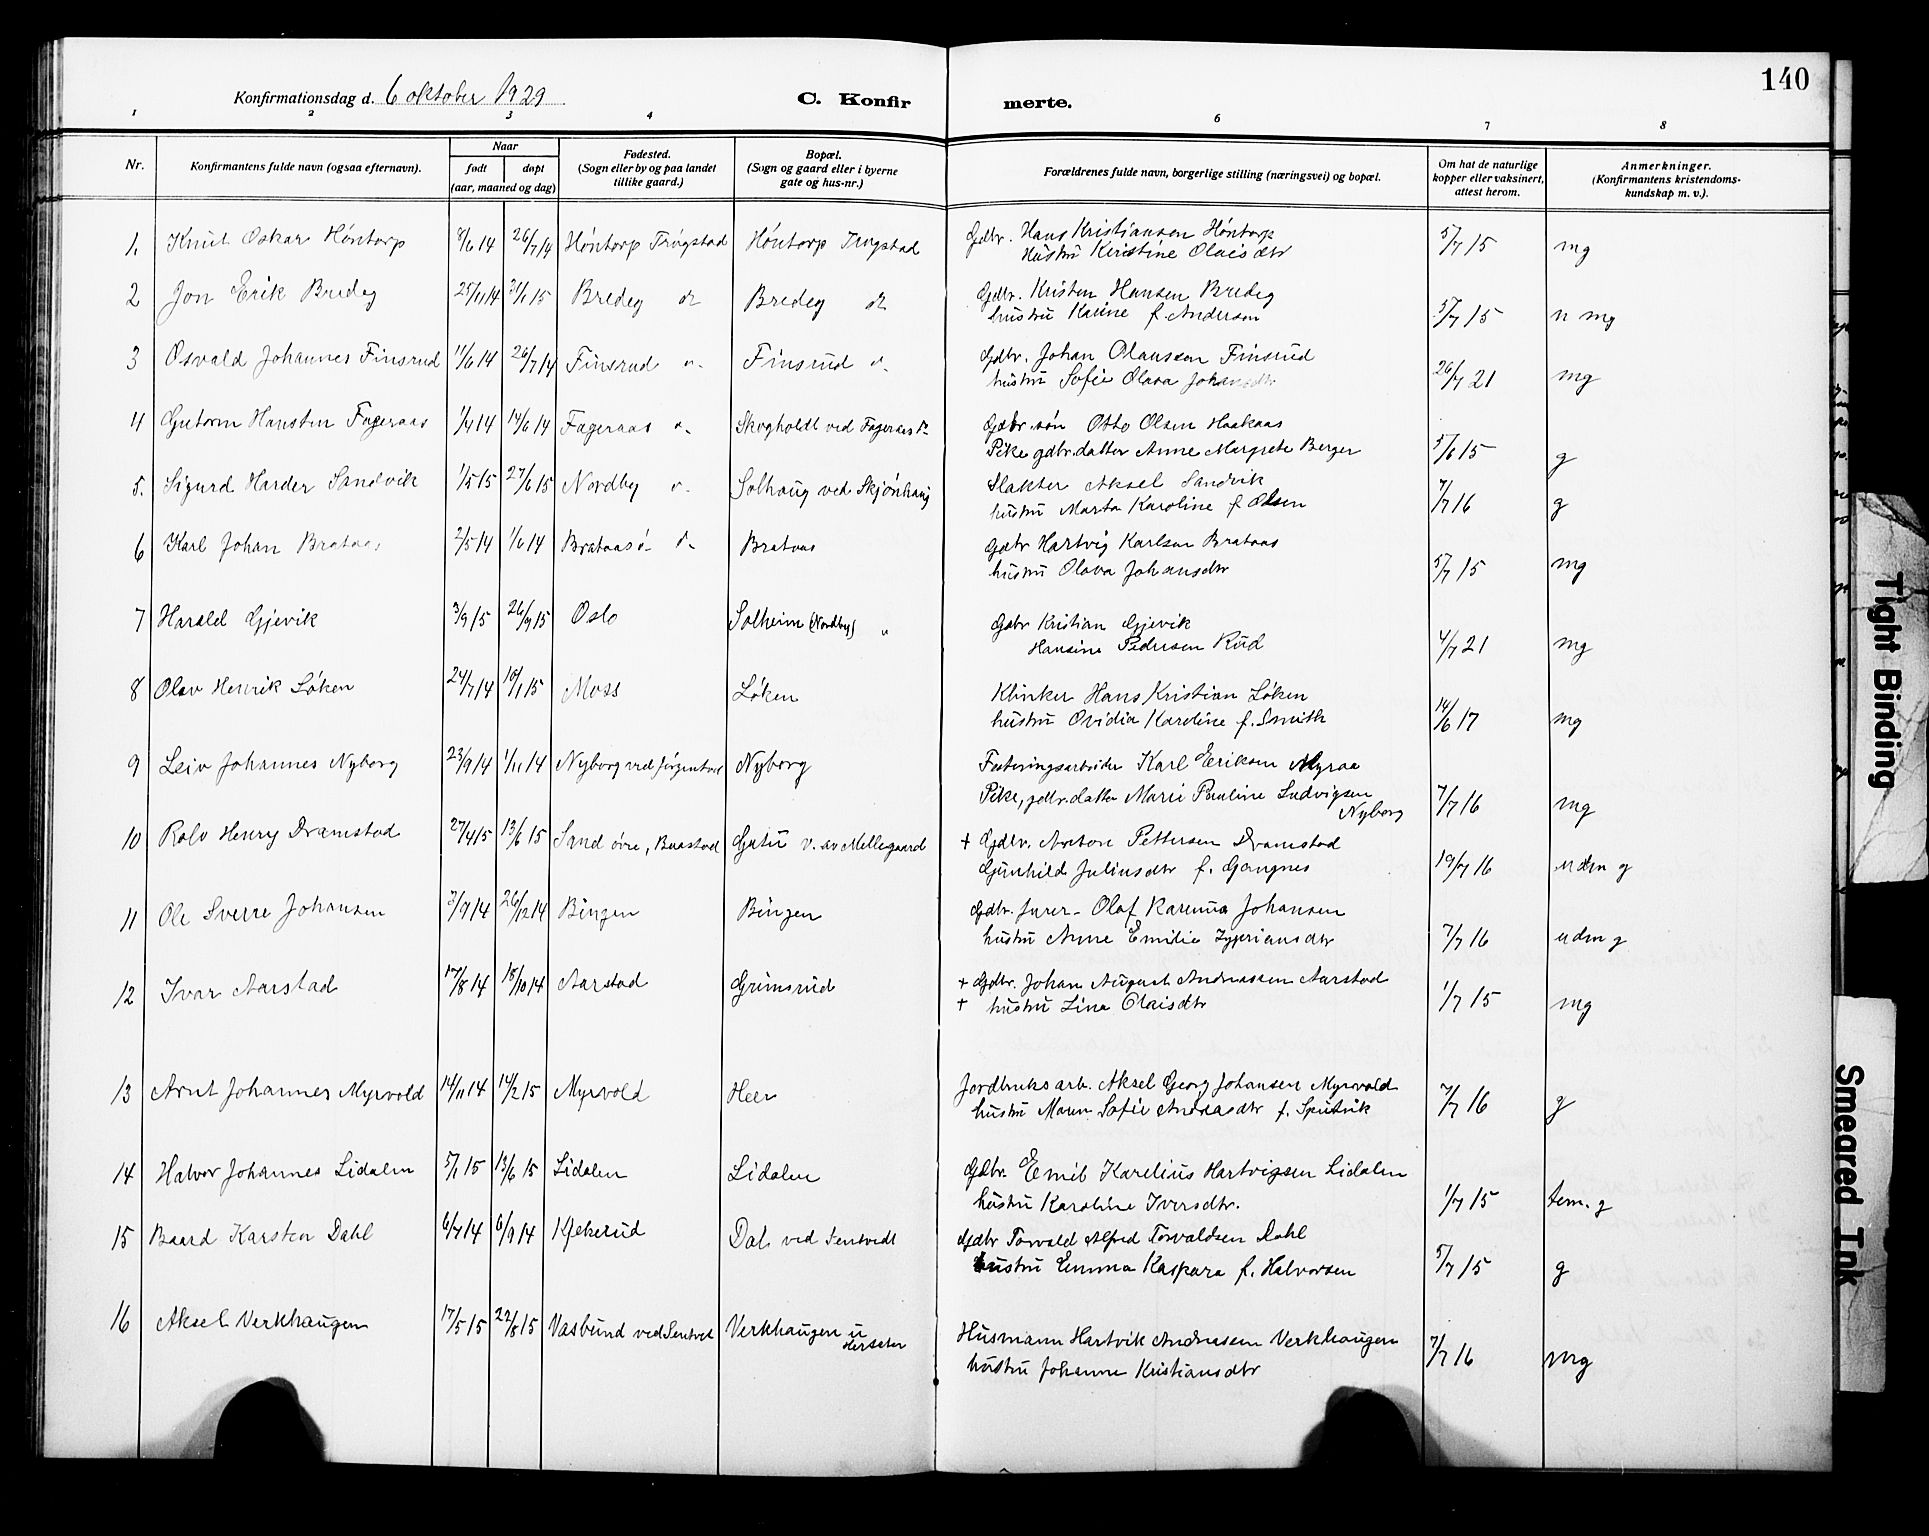 140
Konfirmationsdag d. 6 oktober 1929
C. Konfirmerte.
1 2 3 4 6 7 8
Nr. Konfirmantens fulde navn (ogsaa efternavn). Naar født døpt (aar, maaned og dag) Fødested. (Sogn eller by og paa landet tillike gaard.) Bopæl. (Sogn og gaard eller i byerne gate og hus-nr.) Forældrenes fulde navn, borgerlige stilling (næringsvei) og bopæl. Om hat de naturlige kopper eller vaksinert, attest herom. Anmerkninger. (Konfirmantens kristendomskundskap m. v.).
1. Knut Oskar Höntorp 8/6 14 26/7 14 Höntorp Trögstad Höntorp Trögstad Gdbr. Hans Kristiansen Höntorp
hustru Kirstine Olaisdtr 5/7 15 mg
2 Jon Erik Bredeg 25/11 14 31/1 15 Bredeg do Bredeg do Gdbr. Kristen Hansen Bredeg
hustru Karine f. Andersen 5/7 15 n mg
3 Osvald Johannes Finsrud 11/6 14 26/7 14 Finsrud d. Finsrud d. Gdbr. Johan Olaussen Finsrud
hustru Sofie Olava Johansdtr 26/7 21 mg
4 Gutorm Hansten Fageraas 1/4 14 14/6 14 Fageraas d. Skogholdt ved Fageraas Gdbr. søn Otto Olsen Haakaas
Pike gdbr. datter Anne Margrete Berger 5/6 15 g
5. Sigurd Harder Sandvik 1/5 15 27/6 15 Nordby d. Solhaug ved Skjønhaug Slakter Aksel Sandvik
hustru Marta Karoline f. Olsen 7/7 16 g
6 Karl Johan Brataas 2/5 14 1/6 14 Brataas d. Brataas Gdbr Hartvig Karlsen Brataas
hustru Olava Johansdtr 5/7 15 mg
7 Harald Gjevik 3/9 15 26/9 15 Oslo Solheim (Nordby) " Gdbr Kristian Gjevik
Hansine Pedersen Rud 4/7 21 mg
8 Olav Henrik Löken 24/7 14 10/1 15 Moss Löken Klinker Hans Kristian Löken
hustru Ovidia Karoline f. Smith 14/6 17 mg
9 Leiv Johannes Nyborg 23/9 14 1/11 14 Nyborg ved Jörgentvet Nyborg Karl Eriksen Myraa
Pike, gdbr. datter Marie Pauline Ludvigsen
Nyborg 7/7 16 mg
10 Rolv Henry Dramstad 27/4 15 13/6 15 Sand övre, Baastad Gutu v. av Mellegaard + Gdbr. Anton Pettersen Dramstad
Gunhild Juliusdtr f. Gangnes 19/7 16 udm g
11 Ole Sverre Johansen 3/9 14 26/12 14 Bingen Bingen Gdbr. Olaf Karenus Johansen
hustru Anne Emilie Zypriansdtr 7/7 16 udm g
12 Ivar Aarstad 17/8 14 18/10 14 Aarstad Grimsrud + Gdbr. Johan August Andreassen Aarstad
+ hustru Lina Olaisdtr 1/7 15 mg
13 Arnt Johannes Myrvold 14/11 14 14/2 15 Myrvold Heer Jordbruksarb. Aksel Georg Johansen Myrvold
hustru Maren Sofie Andreasdtr f. Sputvik 7/7 16 g
14 Halvor Johannes Lidalen 5/1 15 13/6 15 Lidalen Lidalen Gdbr. Emil Karelius Hartvigsen Lidalen
hustru Karoline Iversdtr. 1/7 15 tem. g
15 Baard Karsten Dahl 6/7 14 6/9 14 Kjekerud Dal ved Sentvedt Gdbr Torvald Alfred Torvaldsen Dahl
hustru Emma Kaspara f. Halvorsen 5/7 15 g
16 Aksel Verkhaugen 17/5 15 22/8 15 Vasbund ved Sentvet Verkhaugen u Herseter Husmann Hartvik Andreasen Verkhaugen
hustru Johanne Kristiansdtr 7/7 16 mg
Tight Binding
Smeared Ink